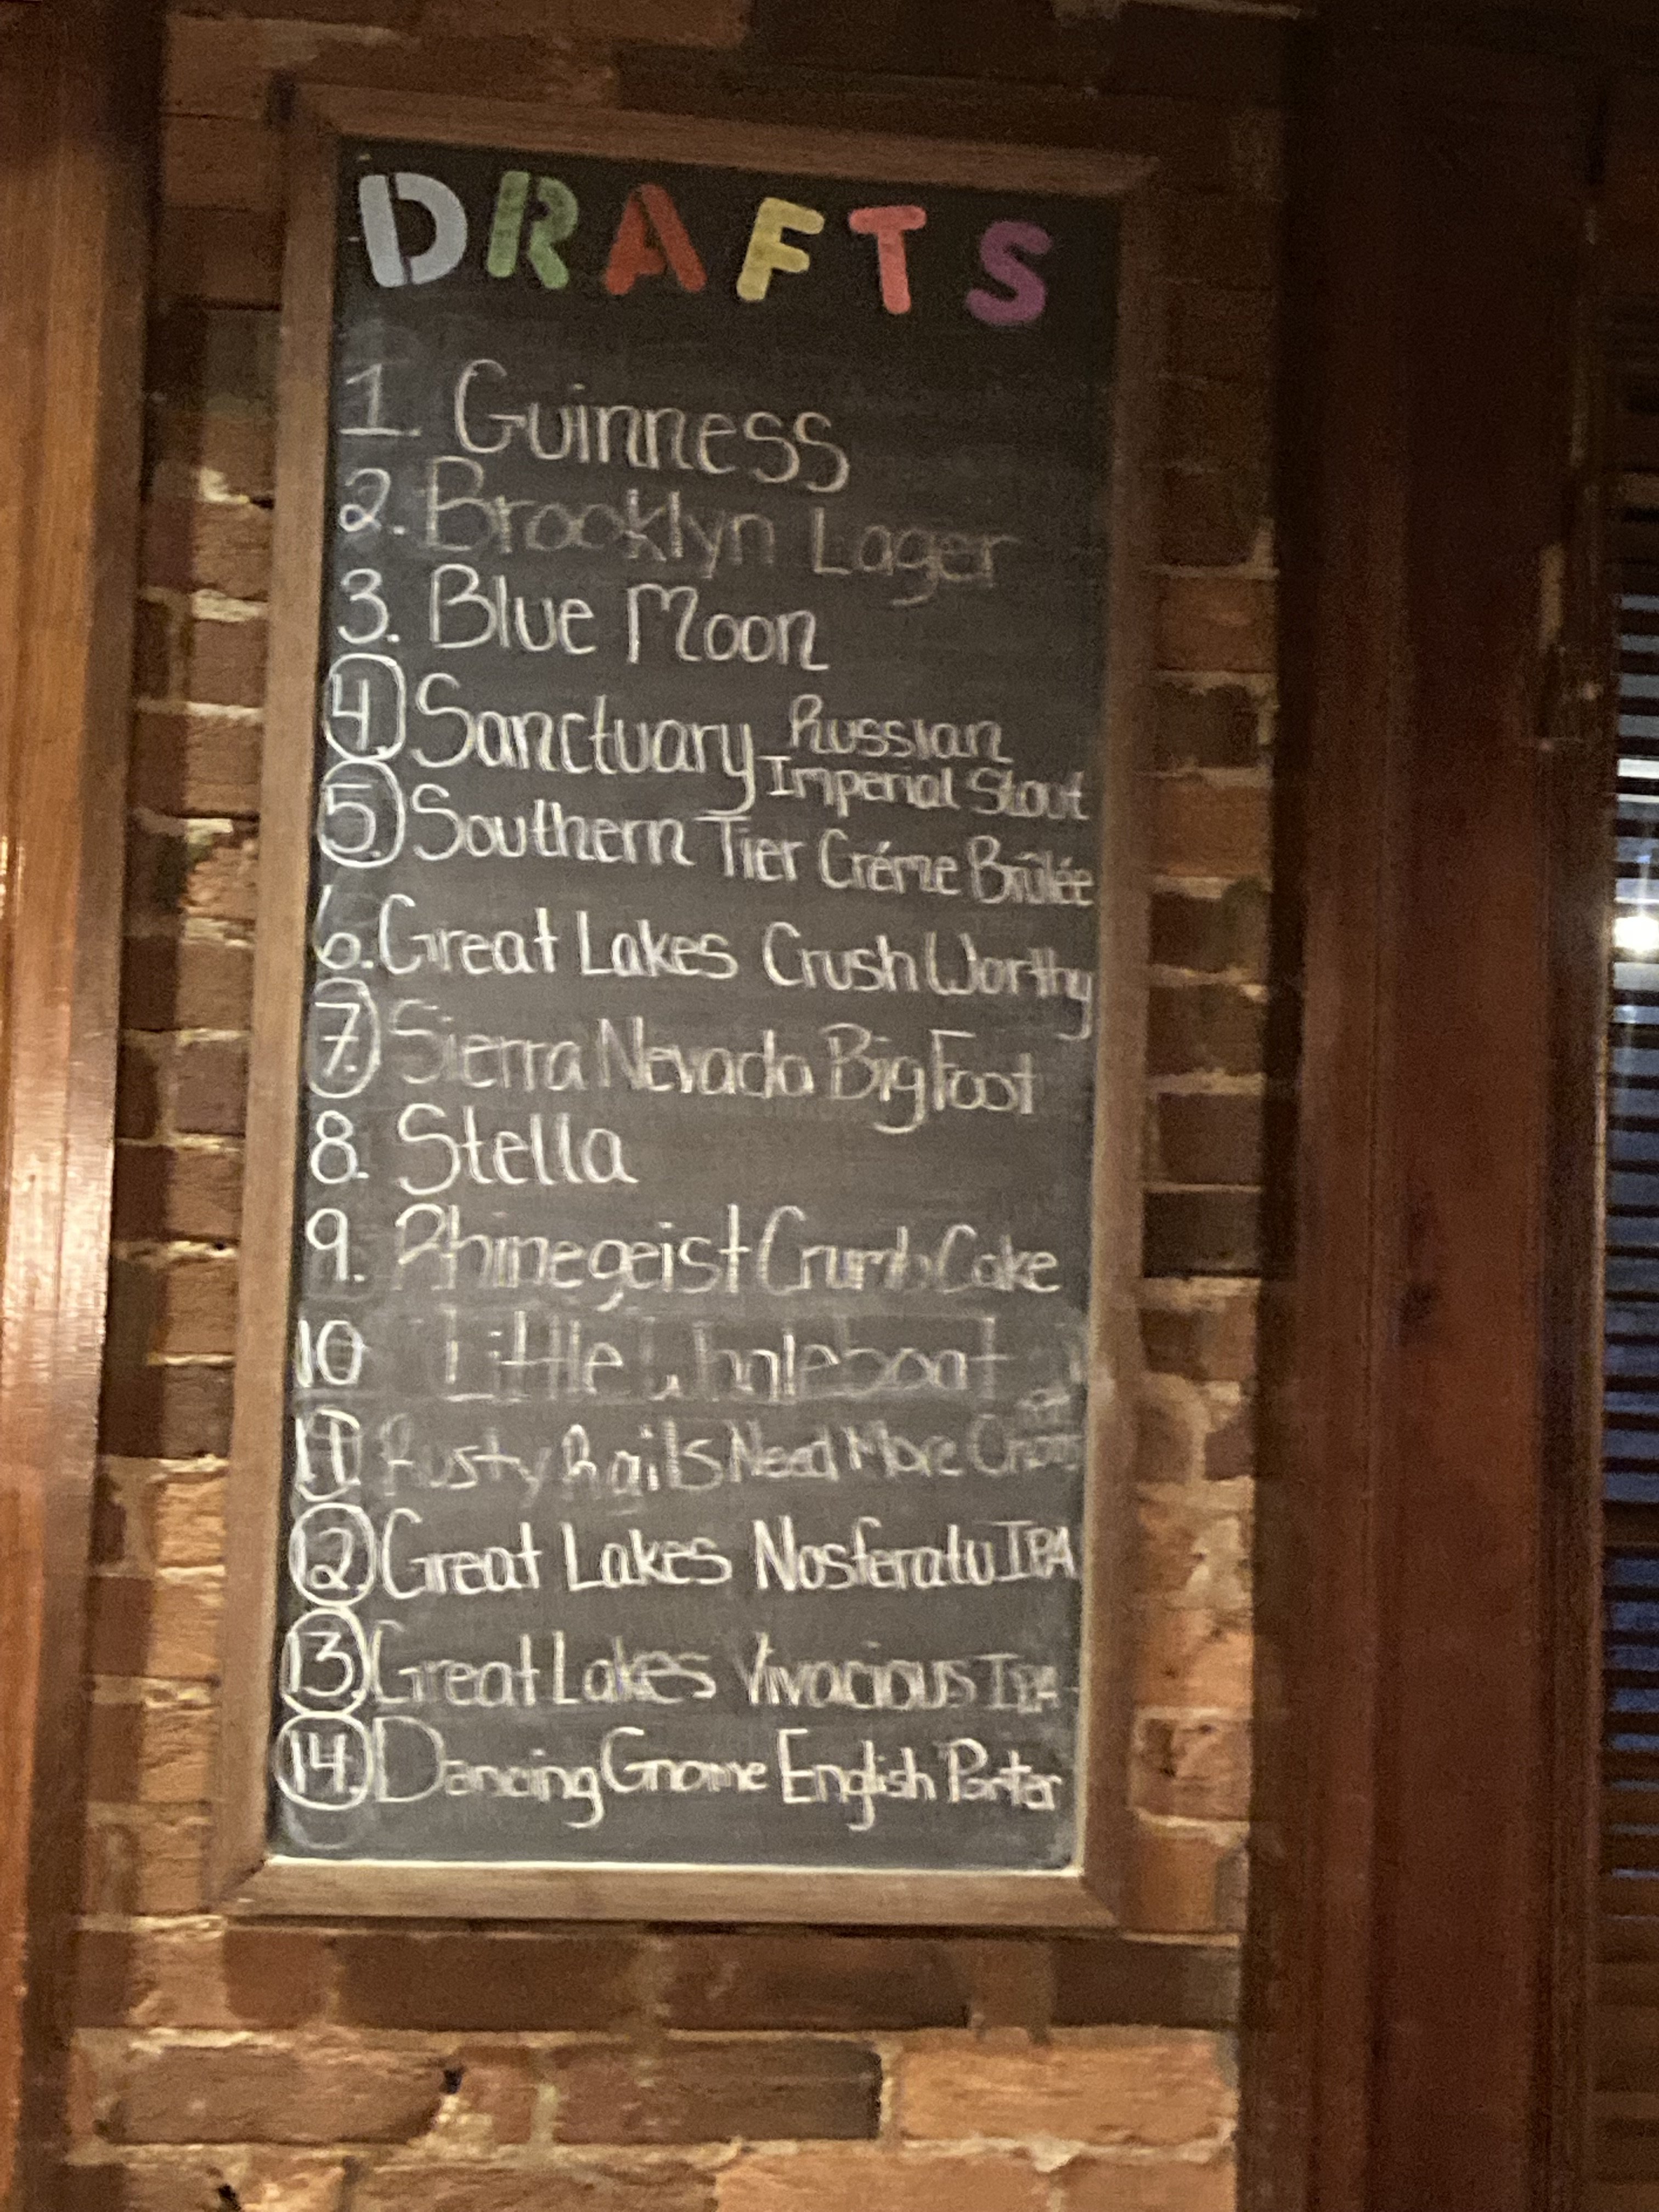 DRAFTS
1. Guinness
2. Brooklyn Lager
3. Blue Moon
4. Sanctuary Russian
Imperial Stout
5. Southern Tier Créme Brûlée
6. Great Lakes Crush Worthy
7. Sierra Nevada Big Foot
8. Stella
9. Rhinegeist Crumb Cake
10 Little
11 Rusty Rails Need More
12. Great Lakes Nosferatu IPA
13. Great Lakes Vivacious IPA
14. Dancing Gnome English Porter